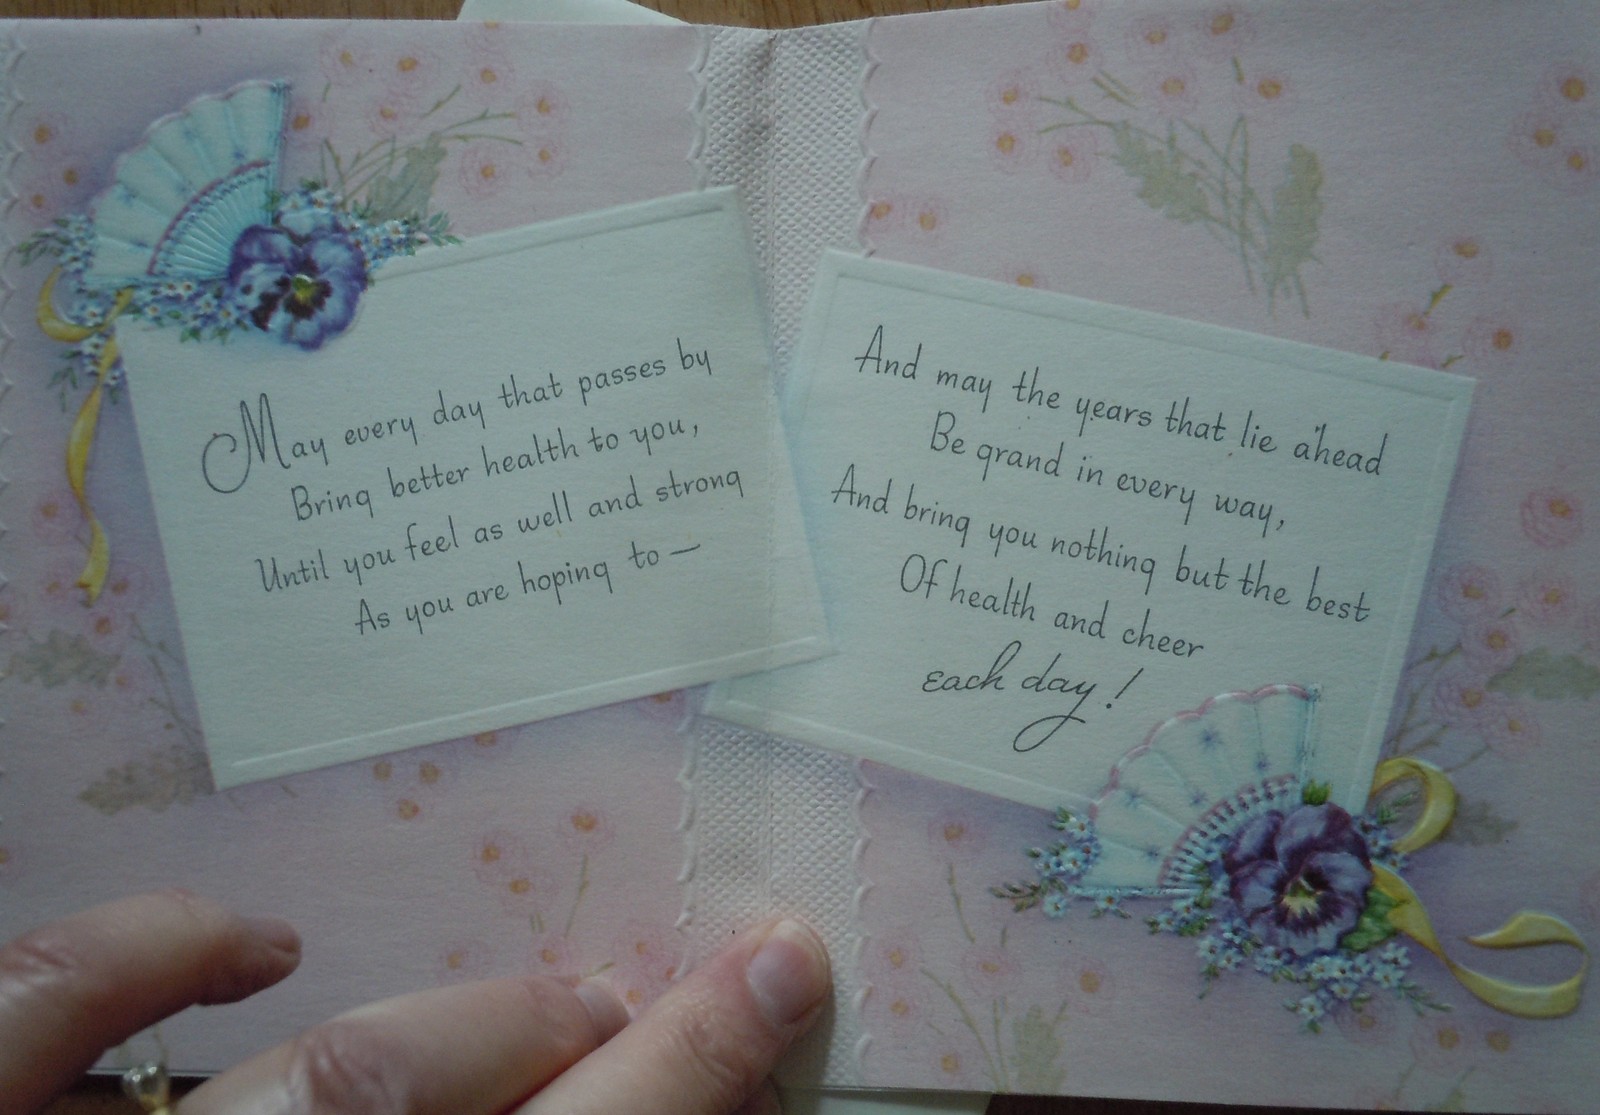 May every day that passes by
Bring better health to you,
Until you feel as well and strong
As you are hoping to —
And may the years that lie ahead
Be grand in every way,
And bring you nothing but the best
Of health and cheer
each day!